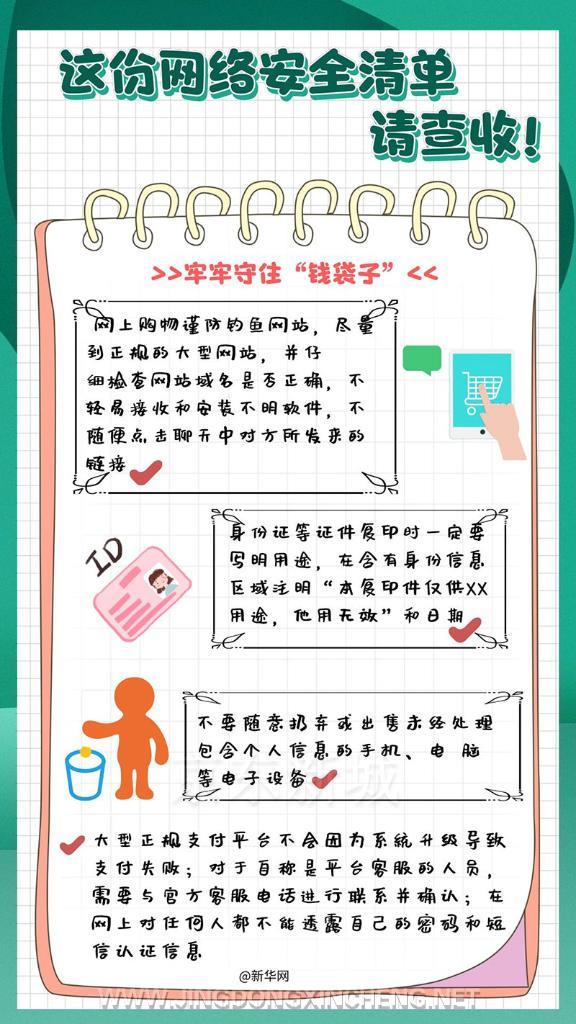 这份网络安全清单
请查收!
>>牢牢守住“钱袋子”<<
网上购物谨防钓鱼网站，尽量
到正规的大型网站，并仔
细检查网站域名是否正确，不
轻易接收和安装不明软件，不
随便点击聊天中对方所发来的
链接
身份证等证件复印时一定要
写明用途，在含有身份信息
区域注明“本复印件仅供XX
用途，他用无效”和日期
ID
不要随意扔弃或出售未经处理
包含个人信息的手机、电 脑
等电子设备
大型正规支付平台不会因为系统升级导致
支付失败；对于自称是平台客服的人员，
需要与官方客服电话进行联系并确认；在
网上对任何人都不能透露自己的密码和短
信认证信息
@新华网
WWW.JINGDONGXINCHENG.NET